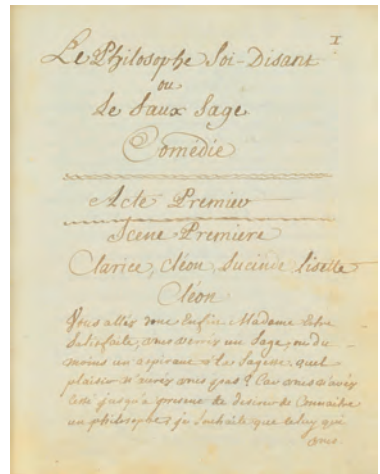 1
Le Philosophe Soi-Disant
ou
Le Faux Sage
Comédie
Acte Premier
Scene Premiere
Clarice, Cléon, Lucinde Lisette
Cléon
Vous allés donc Enfin Madame Estre
Satisfaite, vous verrés un Sage, ou du
moins un aspirant à la Sagesse. quel
plaisir n'aurés vous pas? Car vous n'avés
Cessé jusqu'a present de desirer de Connaitre
un philosophe; je Souhaite que celuy que
vous